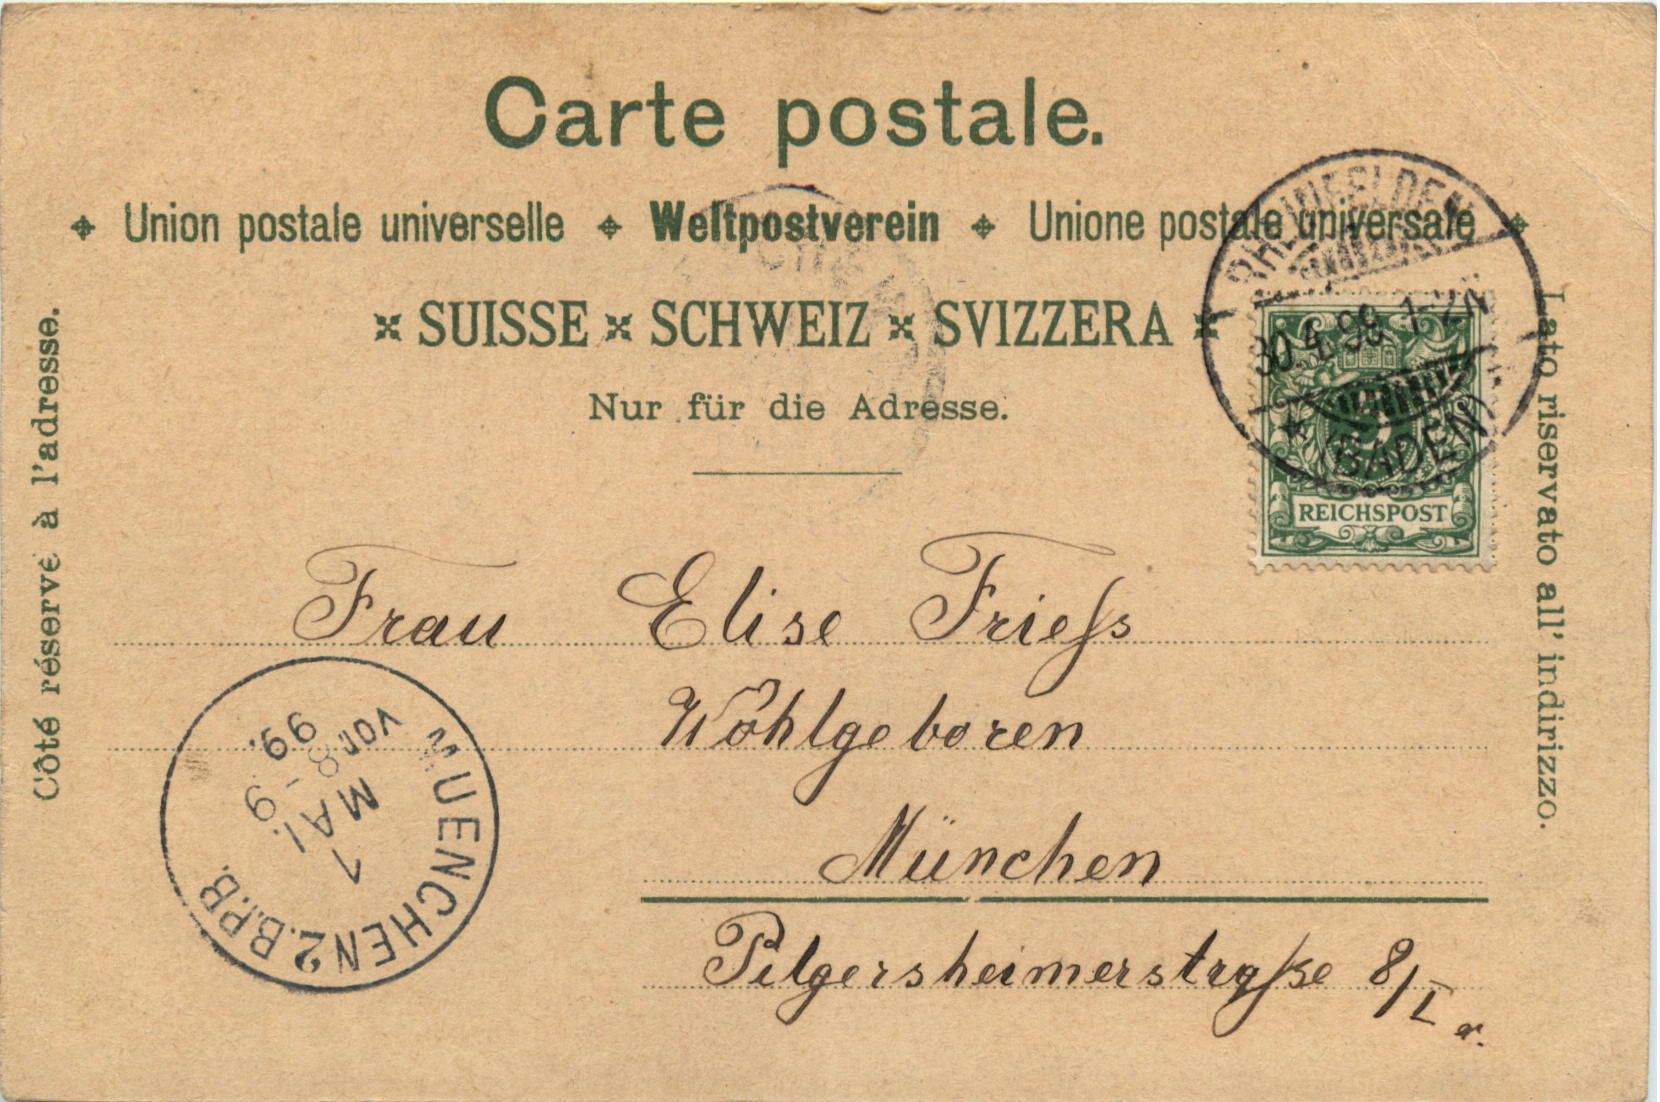 Carte postale.
Union postale universelle Weltpostverein Unione postale universale
SUISSE SCHWEIZ SVIZZERA
Nur für die Adresse.
Côté réservé à l'adresse.
Lato riservato all' indirizzo.
RHEINFELDEN
30.4.99 1-2N
(BADEN)
REICHSPOST
Frau Elise Friess
Wohlgeboren
München
Pilgersheimerstrasse 8/I r.
MUENCHEN 2.B.P.B.
1
MAI
99.
VOR.
8-9